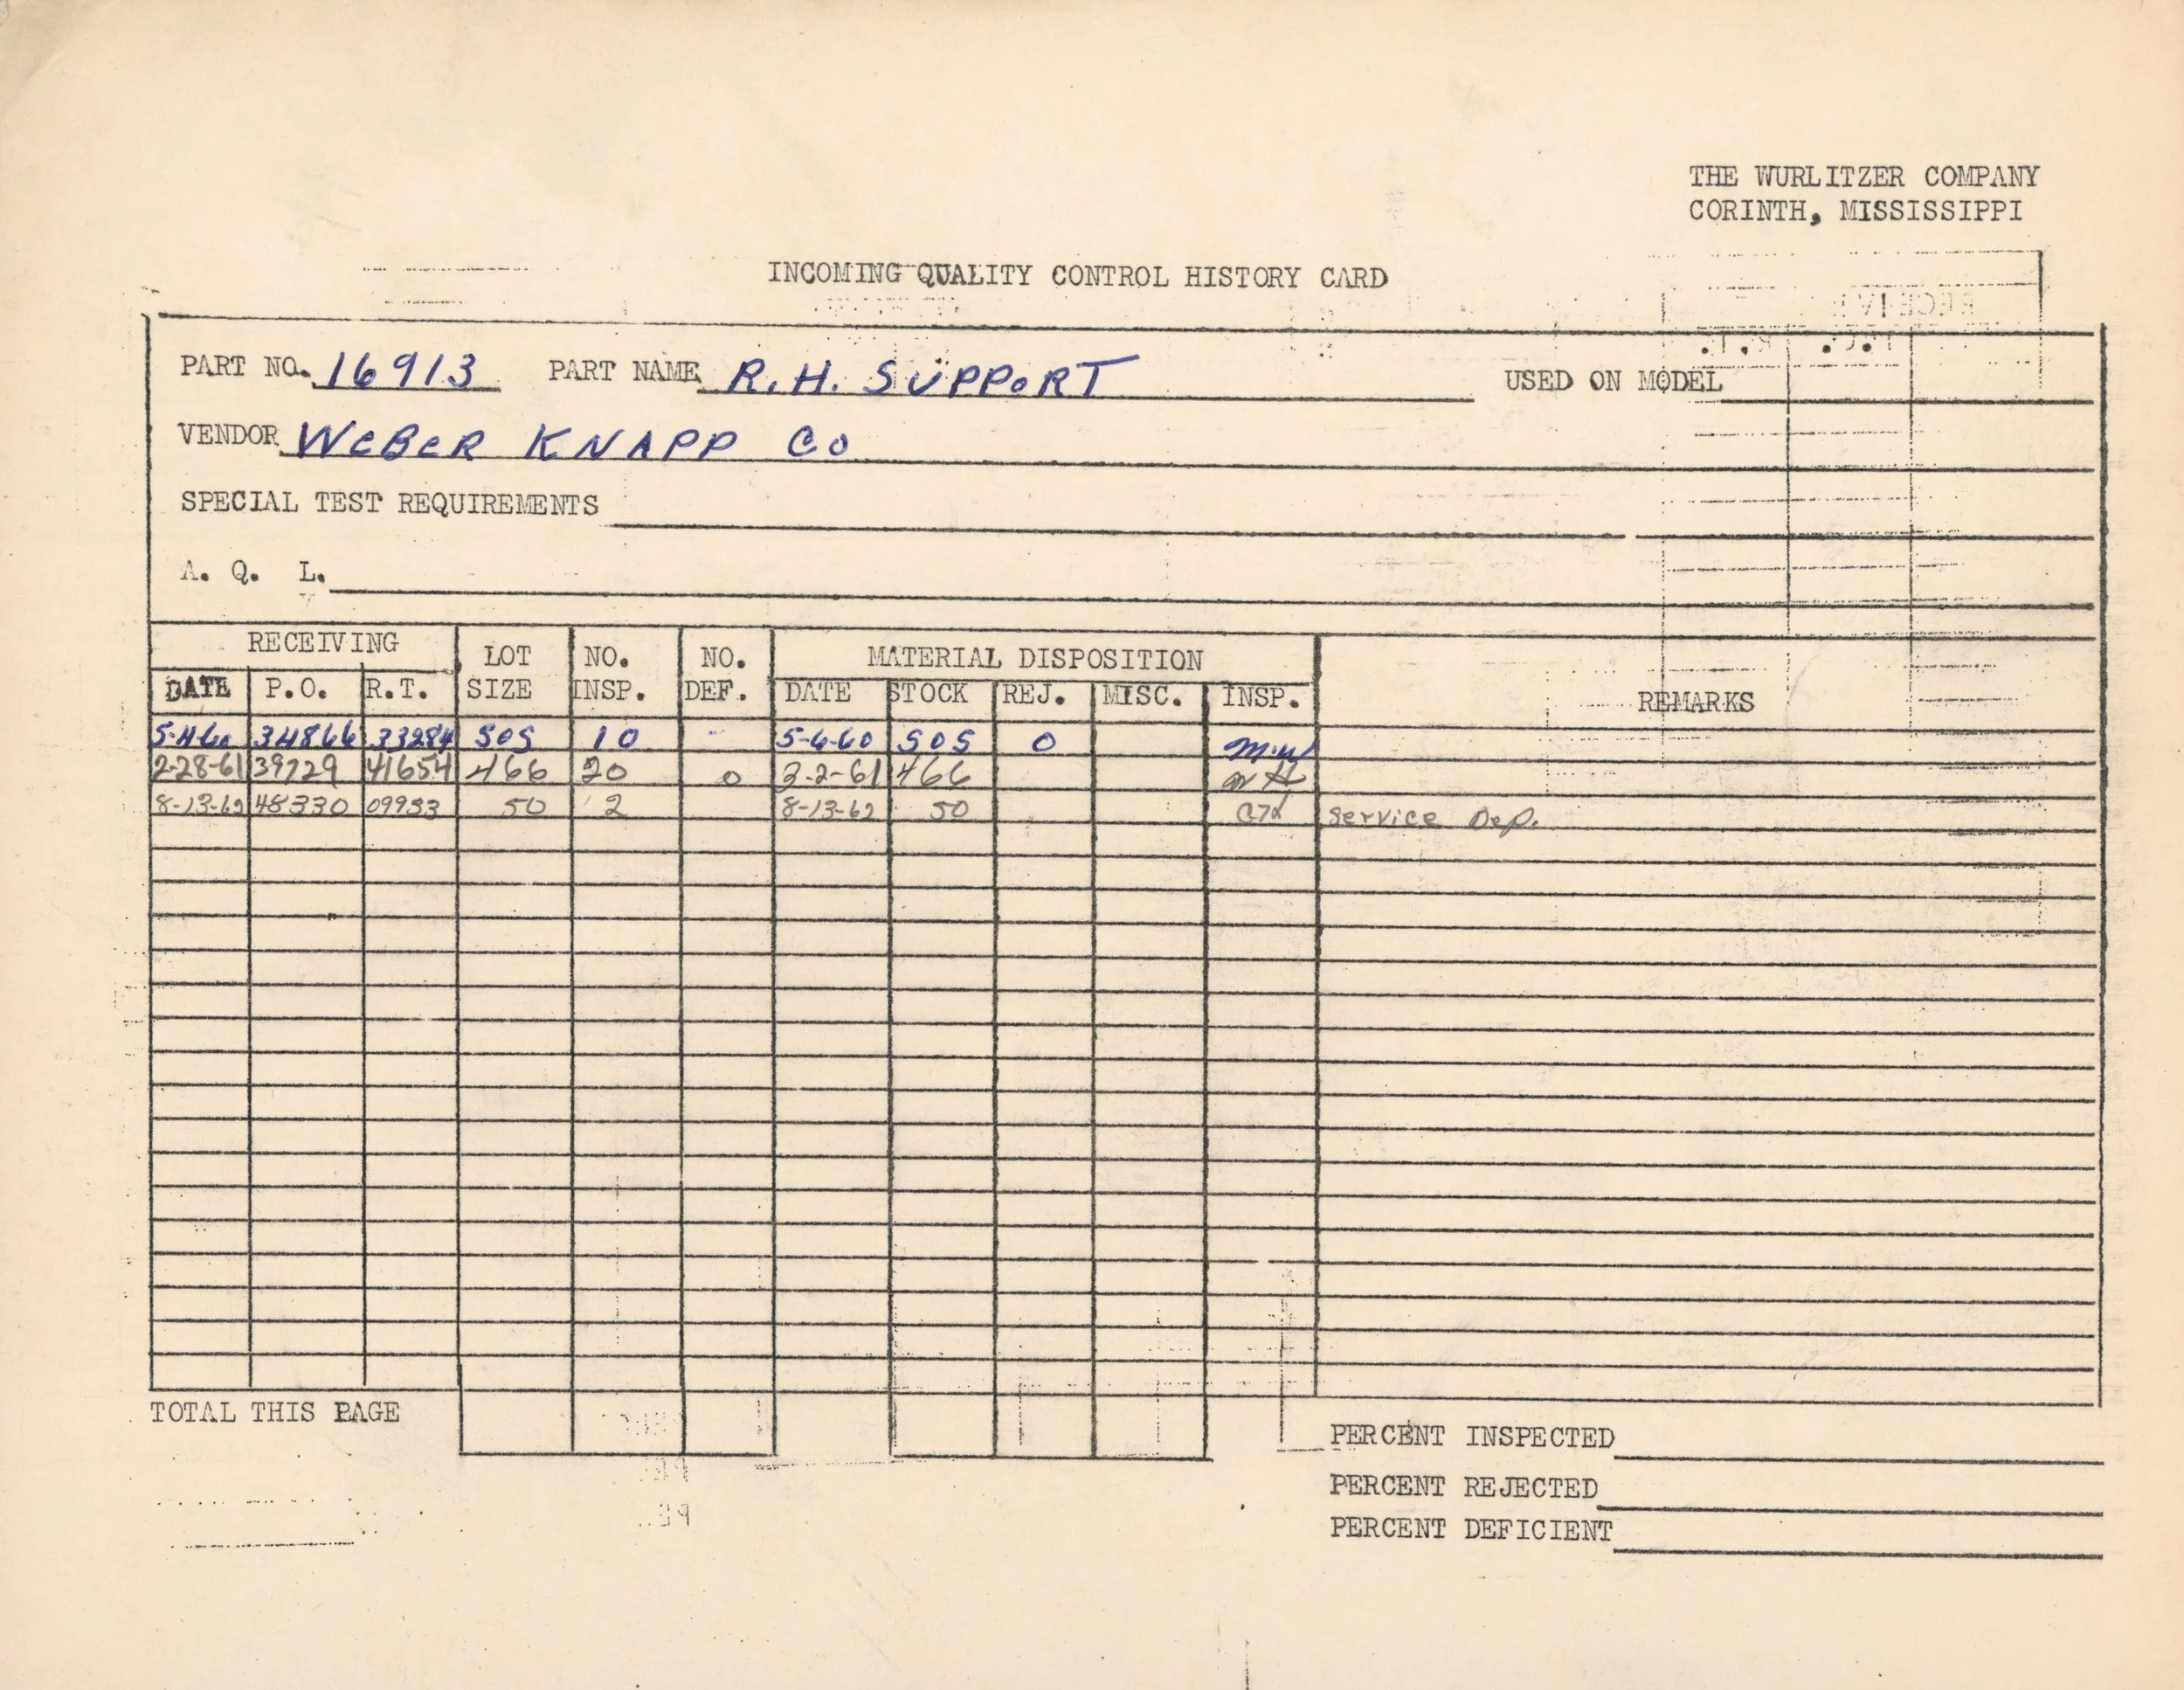 THE WURLITZER COMPANY
CORINTH, MISSISSIPPI
INCOMING QUALITY CONTROL HISTORY CARD
PART NO. 16913 PART NAME R.H. SUPPORT USED ON MODEL
VENDOR WEBER KNAPP CO
SPECIAL TEST REQUIREMENTS
A. Q. L.
RECEIVING LOT SIZE NO. INSP. NO. DEF. MATERIAL DISPOSITION REMARKS
DATE P.O. R.T. DATE STOCK REJ. MISC. INSP.
5-4-60 34866 33284 505 10 5-6-60 505 0
2-28-61 39729 41654 466 20 0 3-2-61 466
8-13-62 48330 09933 50 2 8-13-62 50 Service Dep.
TOTAL THIS PAGE
PERCENT INSPECTED
PERCENT REJECTED
PERCENT DEFICIENT